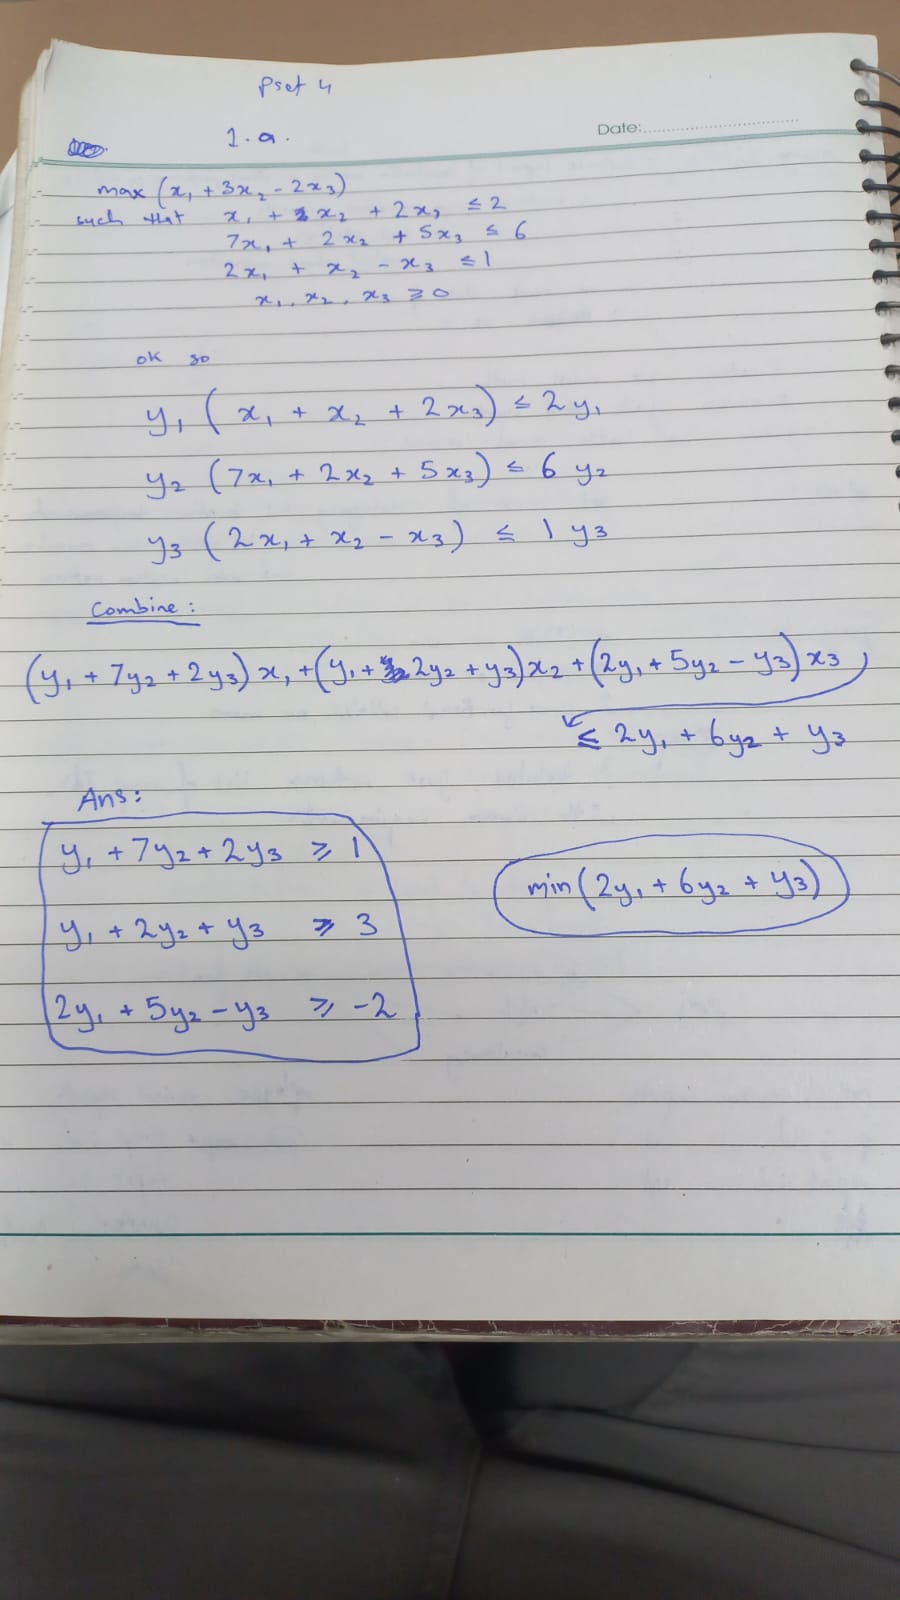 Pset 4
1.a.
Date:
max (x₁ + 3x₂ - 2x₃)
such that x₁ + x₂ + 2x₃ ≤ 2
7x₁ + 2x₂ + 5x₃ ≤ 6
2x₁ + x₂ - x₃ ≤ 1
x₁, x₂, x₃ ≥ 0
ok so
y₁ (x₁ + x₂ + 2x₃) ≤ 2y₁
y₂ (7x₁ + 2x₂ + 5x₃) ≤ 6y₂
y₃ (2x₁ + x₂ - x₃) ≤ 1y₃
Combine:
(y₁ + 7y₂ + 2y₃)x₁ + (y₁ + 2y₂ + y₃)x₂ + (2y₁ + 5y₂ - y₃)x₃
≤ 2y₁ + 6y₂ + y₃
Ans:
y₁ + 7y₂ + 2y₃ ≥ 1
y₁ + 2y₂ + y₃ ≥ 3
2y₁ + 5y₂ - y₃ ≥ -2
min(2y₁ + 6y₂ + y₃)